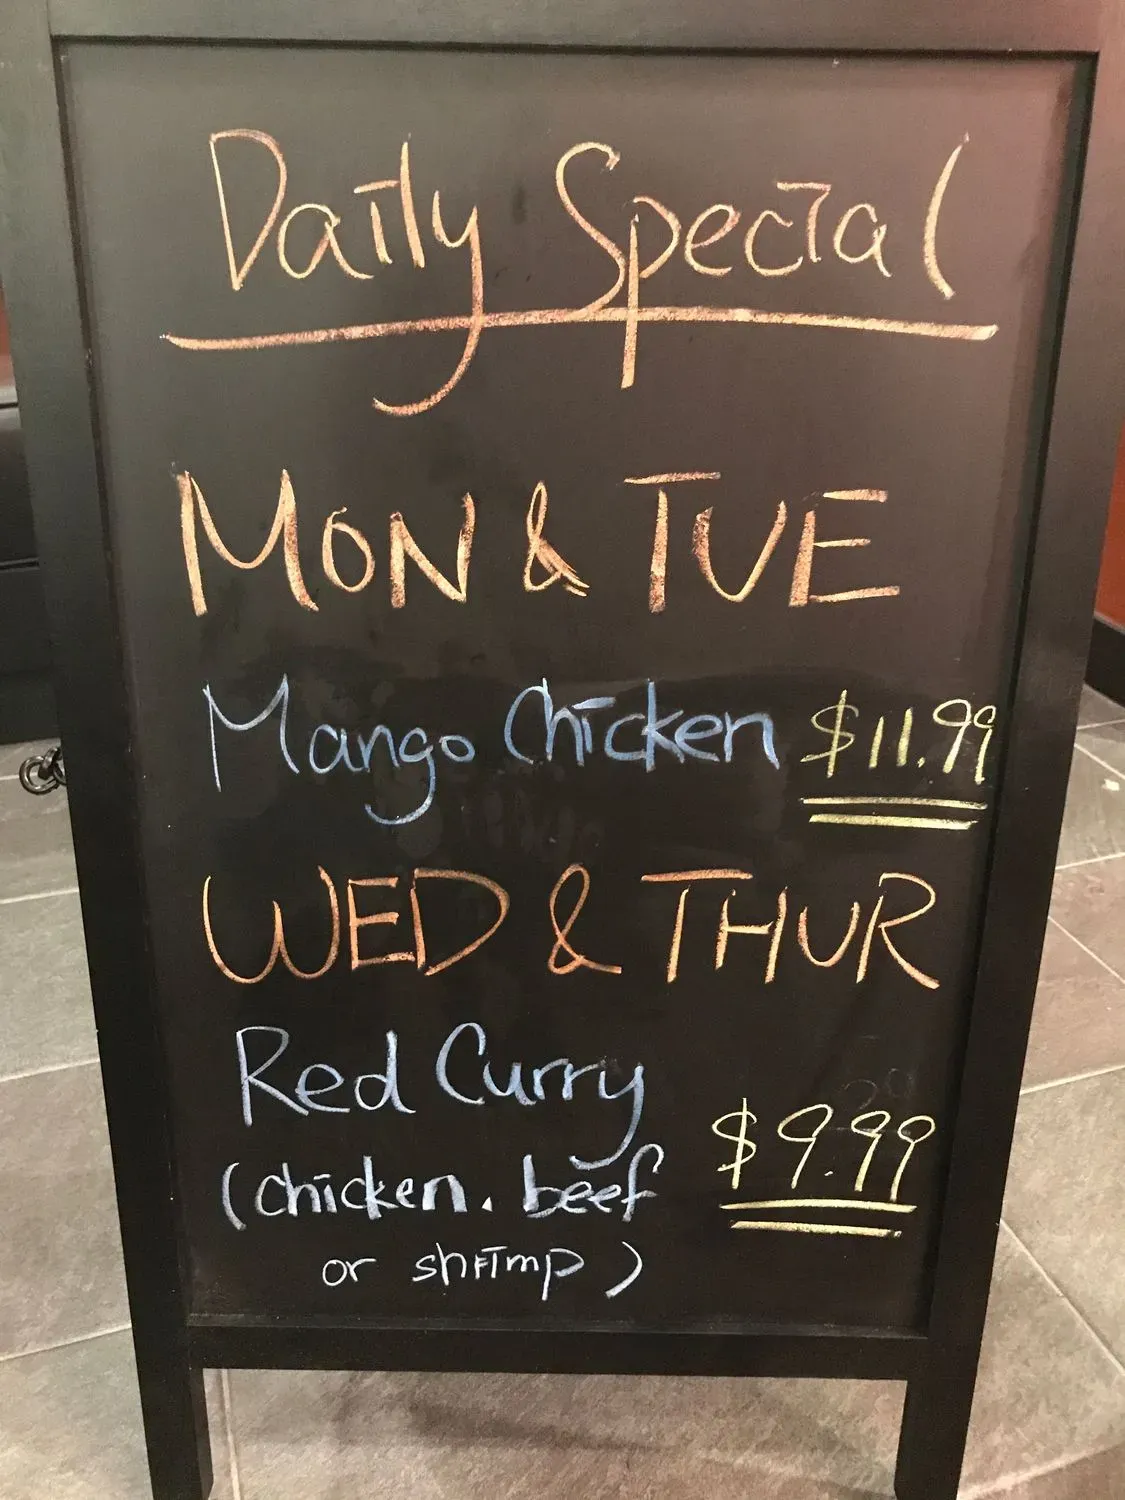 Daily Special
MON & TUE
Mango Chicken $11.99
WED & THUR
Red Curry
$9.99
(chicken. beef
or shrimp)